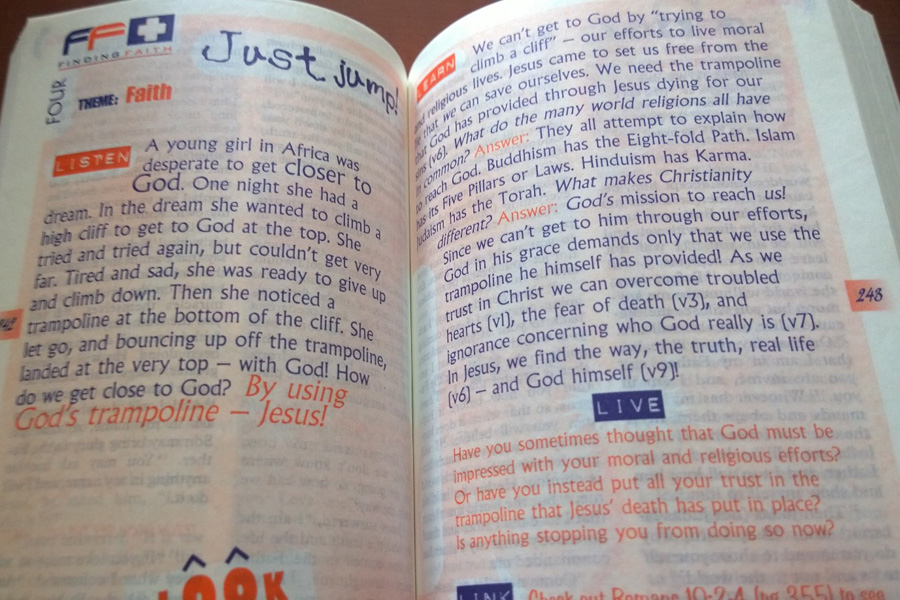 FF
FINDING FAITH
Just jump!
FOUR
THEME: Faith
LISTEN
A young girl in Africa was
desperate to get closer to
God. One night she had a
dream. In the dream she wanted to climb a
high cliff to get to God at the top. She
tried and tried again, but couldn't get very
far. Tired and sad, she was ready to give up
and climb down. Then she noticed a
trampoline at the bottom of the cliff. She
let go, and bouncing up off the trampoline,
landed at the very top – with God! How
do we get close to God? By using
God's trampoline – Jesus!
LOOK
LEARN
We can't get to God by "trying to
climb a cliff" – our efforts to live moral
and religious lives. Jesus came to set us free from the
that we can save ourselves. We need the trampoline
that God has provided through Jesus dying for our
sins (v6). What do the many world religions all have
in common? Answer: They all attempt to explain how
to reach God. Buddhism has the Eight-fold Path. Islam
has its Five Pillars or Laws. Hinduism has Karma.
Judaism has the Torah. What makes Christianity
different? Answer: God's mission to reach us!
Since we can't get to him through our efforts,
God in his grace demands only that we use the
trampoline he himself has provided! As we
trust in Christ we can overcome troubled
hearts (v1), the fear of death (v3), and
ignorance concerning who God really is (v7).
In Jesus, we find the way, the truth, real life
(v6) – and God himself (v9)!
248
LIVE
Have you sometimes thought that God must be
impressed with your moral and religious efforts?
Or have you instead put all your trust in the
trampoline that Jesus' death has put in place?
Is anything stopping you from doing so now?
LINK
Check out Romans 10:2-4 (pg 355) to see